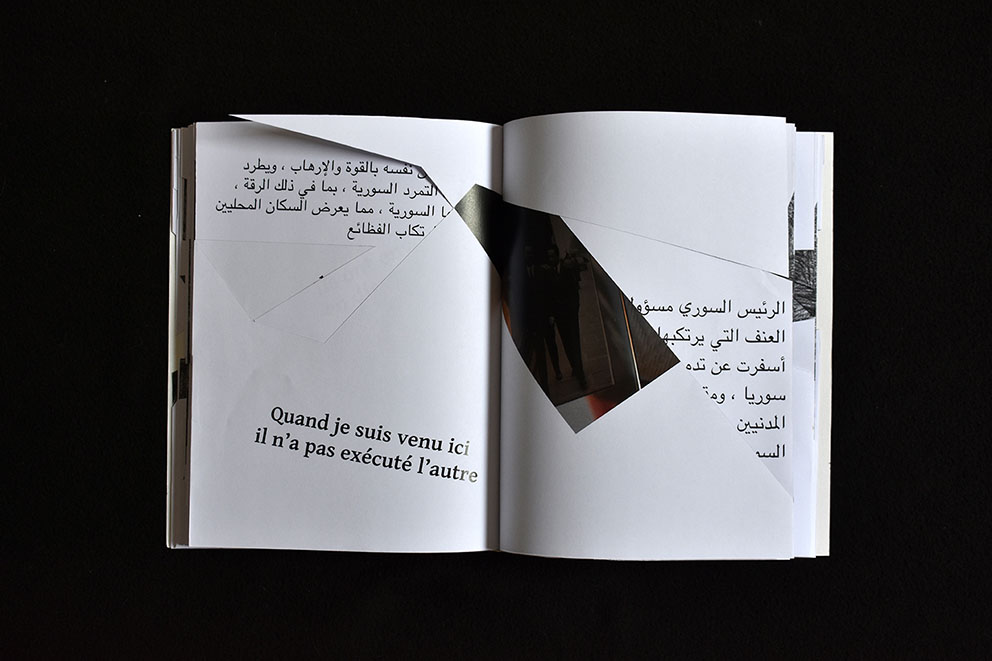 نفسه بالقوة والإرهاب ، ويطرد
التمرد السورية ، بما في ذلك الرقة ،
السورية ، مما يعرض السكان المحليين
تكاب الفظائع
Quand je suis venu ici
il n’a pas exécuté l’autre
الرئيس السوري مسؤو
العنف التي يرتكبها
أسفرت عن تده
سوريا ، ومة
المدنيين
السم